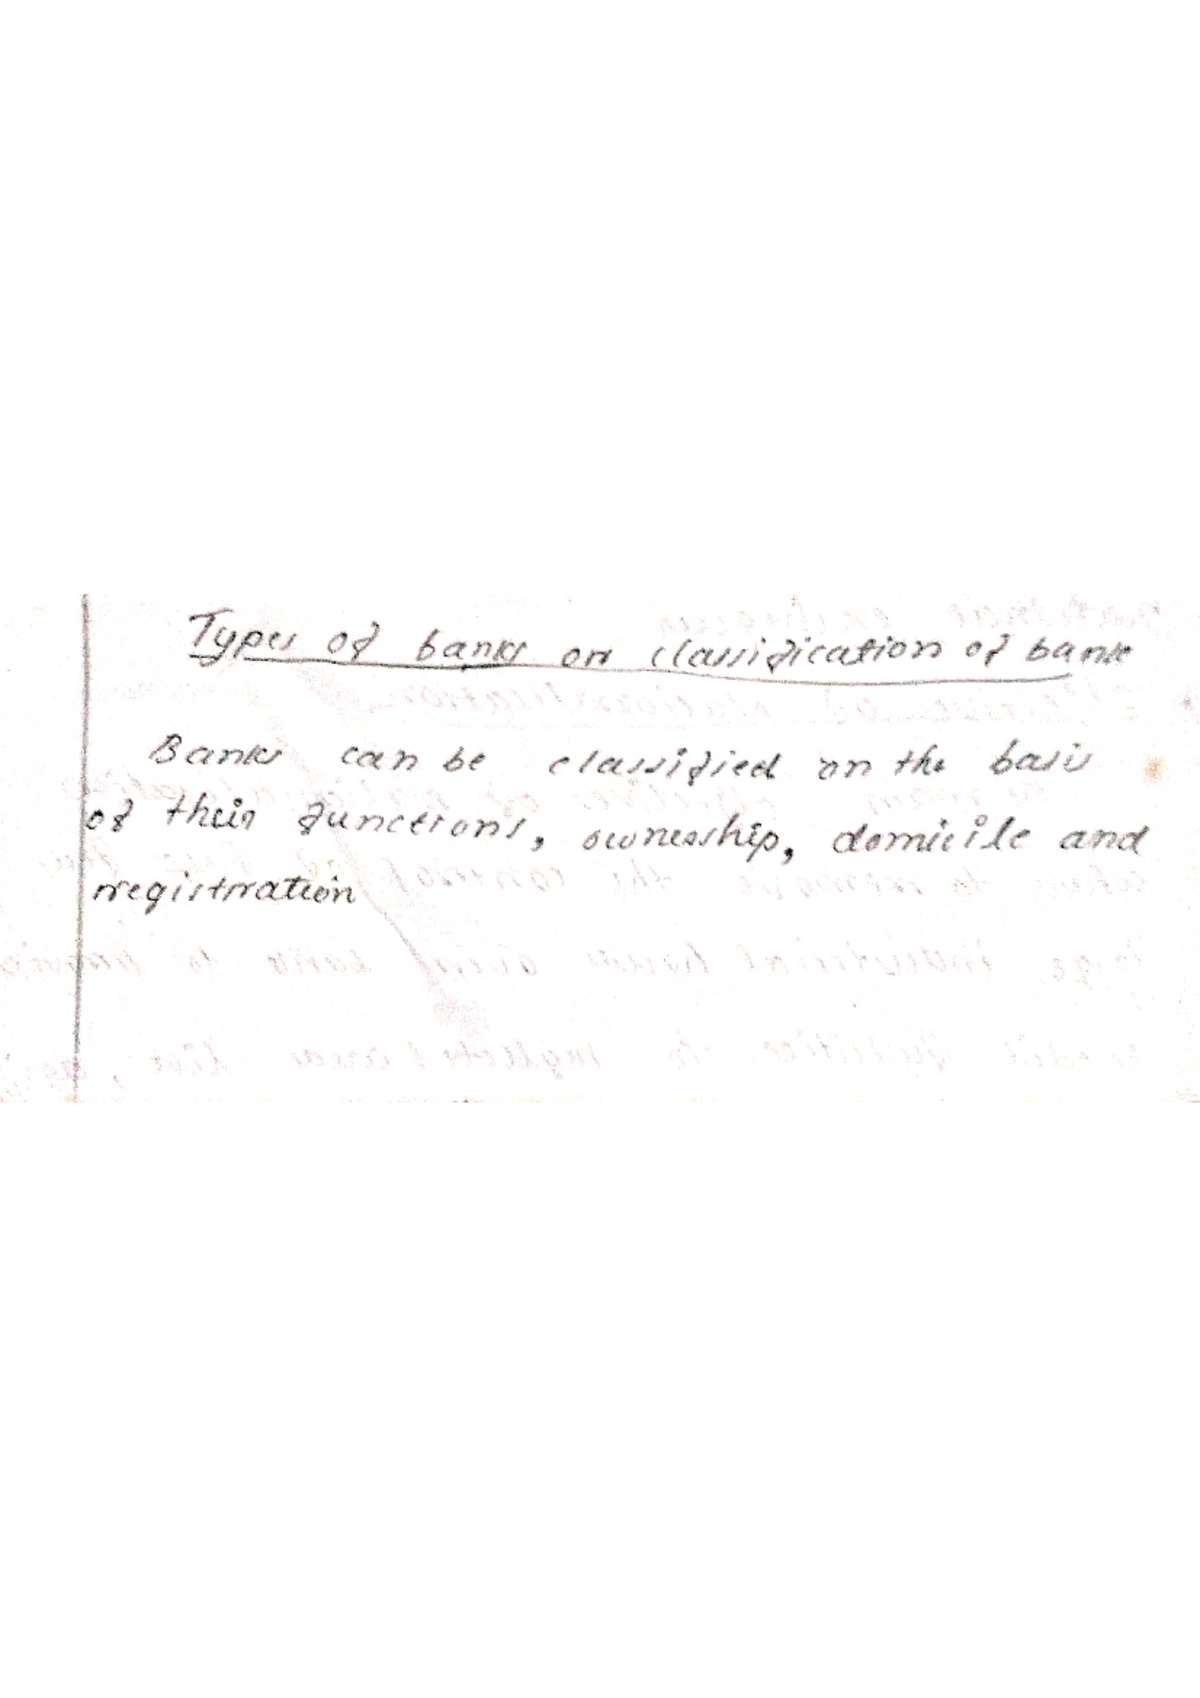 Types of banks or classification of bank
Banks can be classified on the basis
of their functions, ownership, domicile and
registration